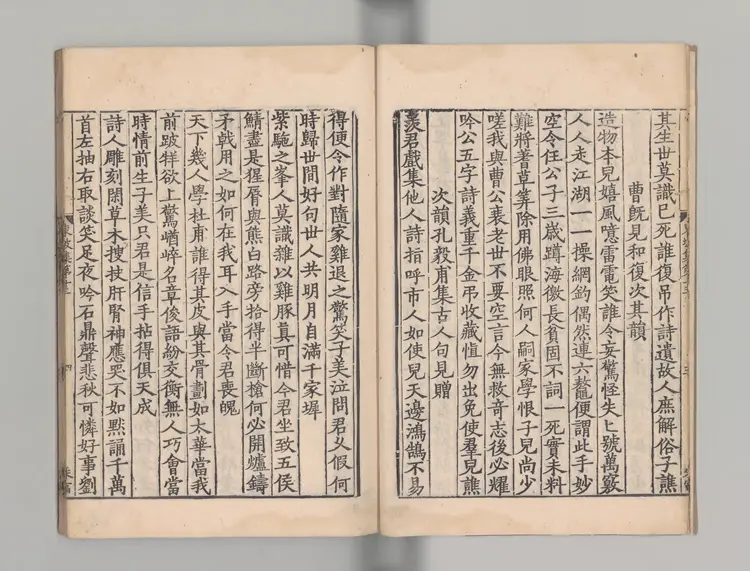 其生世莫識已死誰復吊作詩遺故人庶解俗子譙
曹旣見和復次其韻
造物本兒嬉風噫雷電笑誰令妄驚怪失匕號萬竅
人人走江湖一一操網釣偶然連六鼇便謂此手妙
空令任公子三歲蹲海徼長貧固不詞一死實未料
難將蓍草筭除用佛眼照何人嗣家學恨子兒尚少
嗟我與曹公衰老世不要空言今無救奇志後必耀
吟公五字詩義重千金弔收藏愼勿出免使羣兒譙
次韻孔毅甫集古人句見贈
羨君戲集他人詩指呼市人如使兒天邊鴻鵠不易
得便令作對隨家雞退之驚笑子美泣問君久假何
時歸世間好句世人共明月自滿千家墀
紫駞之峯人莫識雜以雞豚眞可惜今君坐致五侯
鯖盡是猩脣與熊白路旁拾得半斷槍何必開爐鑄
矛戟用之如何在我耳入手當令君喪魄
天下幾人學杜甫誰得其皮與其骨劃如太華當我
前跛牂欲上驚崷崒名章俊語紛交衡無人巧會當
時情前生子美只君是信手拈得俱天成
詩人雕刻閑草木搜抉肝腎神應哭不如默誦千萬
首左抽右取談笑足夜吟石鼎聲悲秋可憐好事劉
四